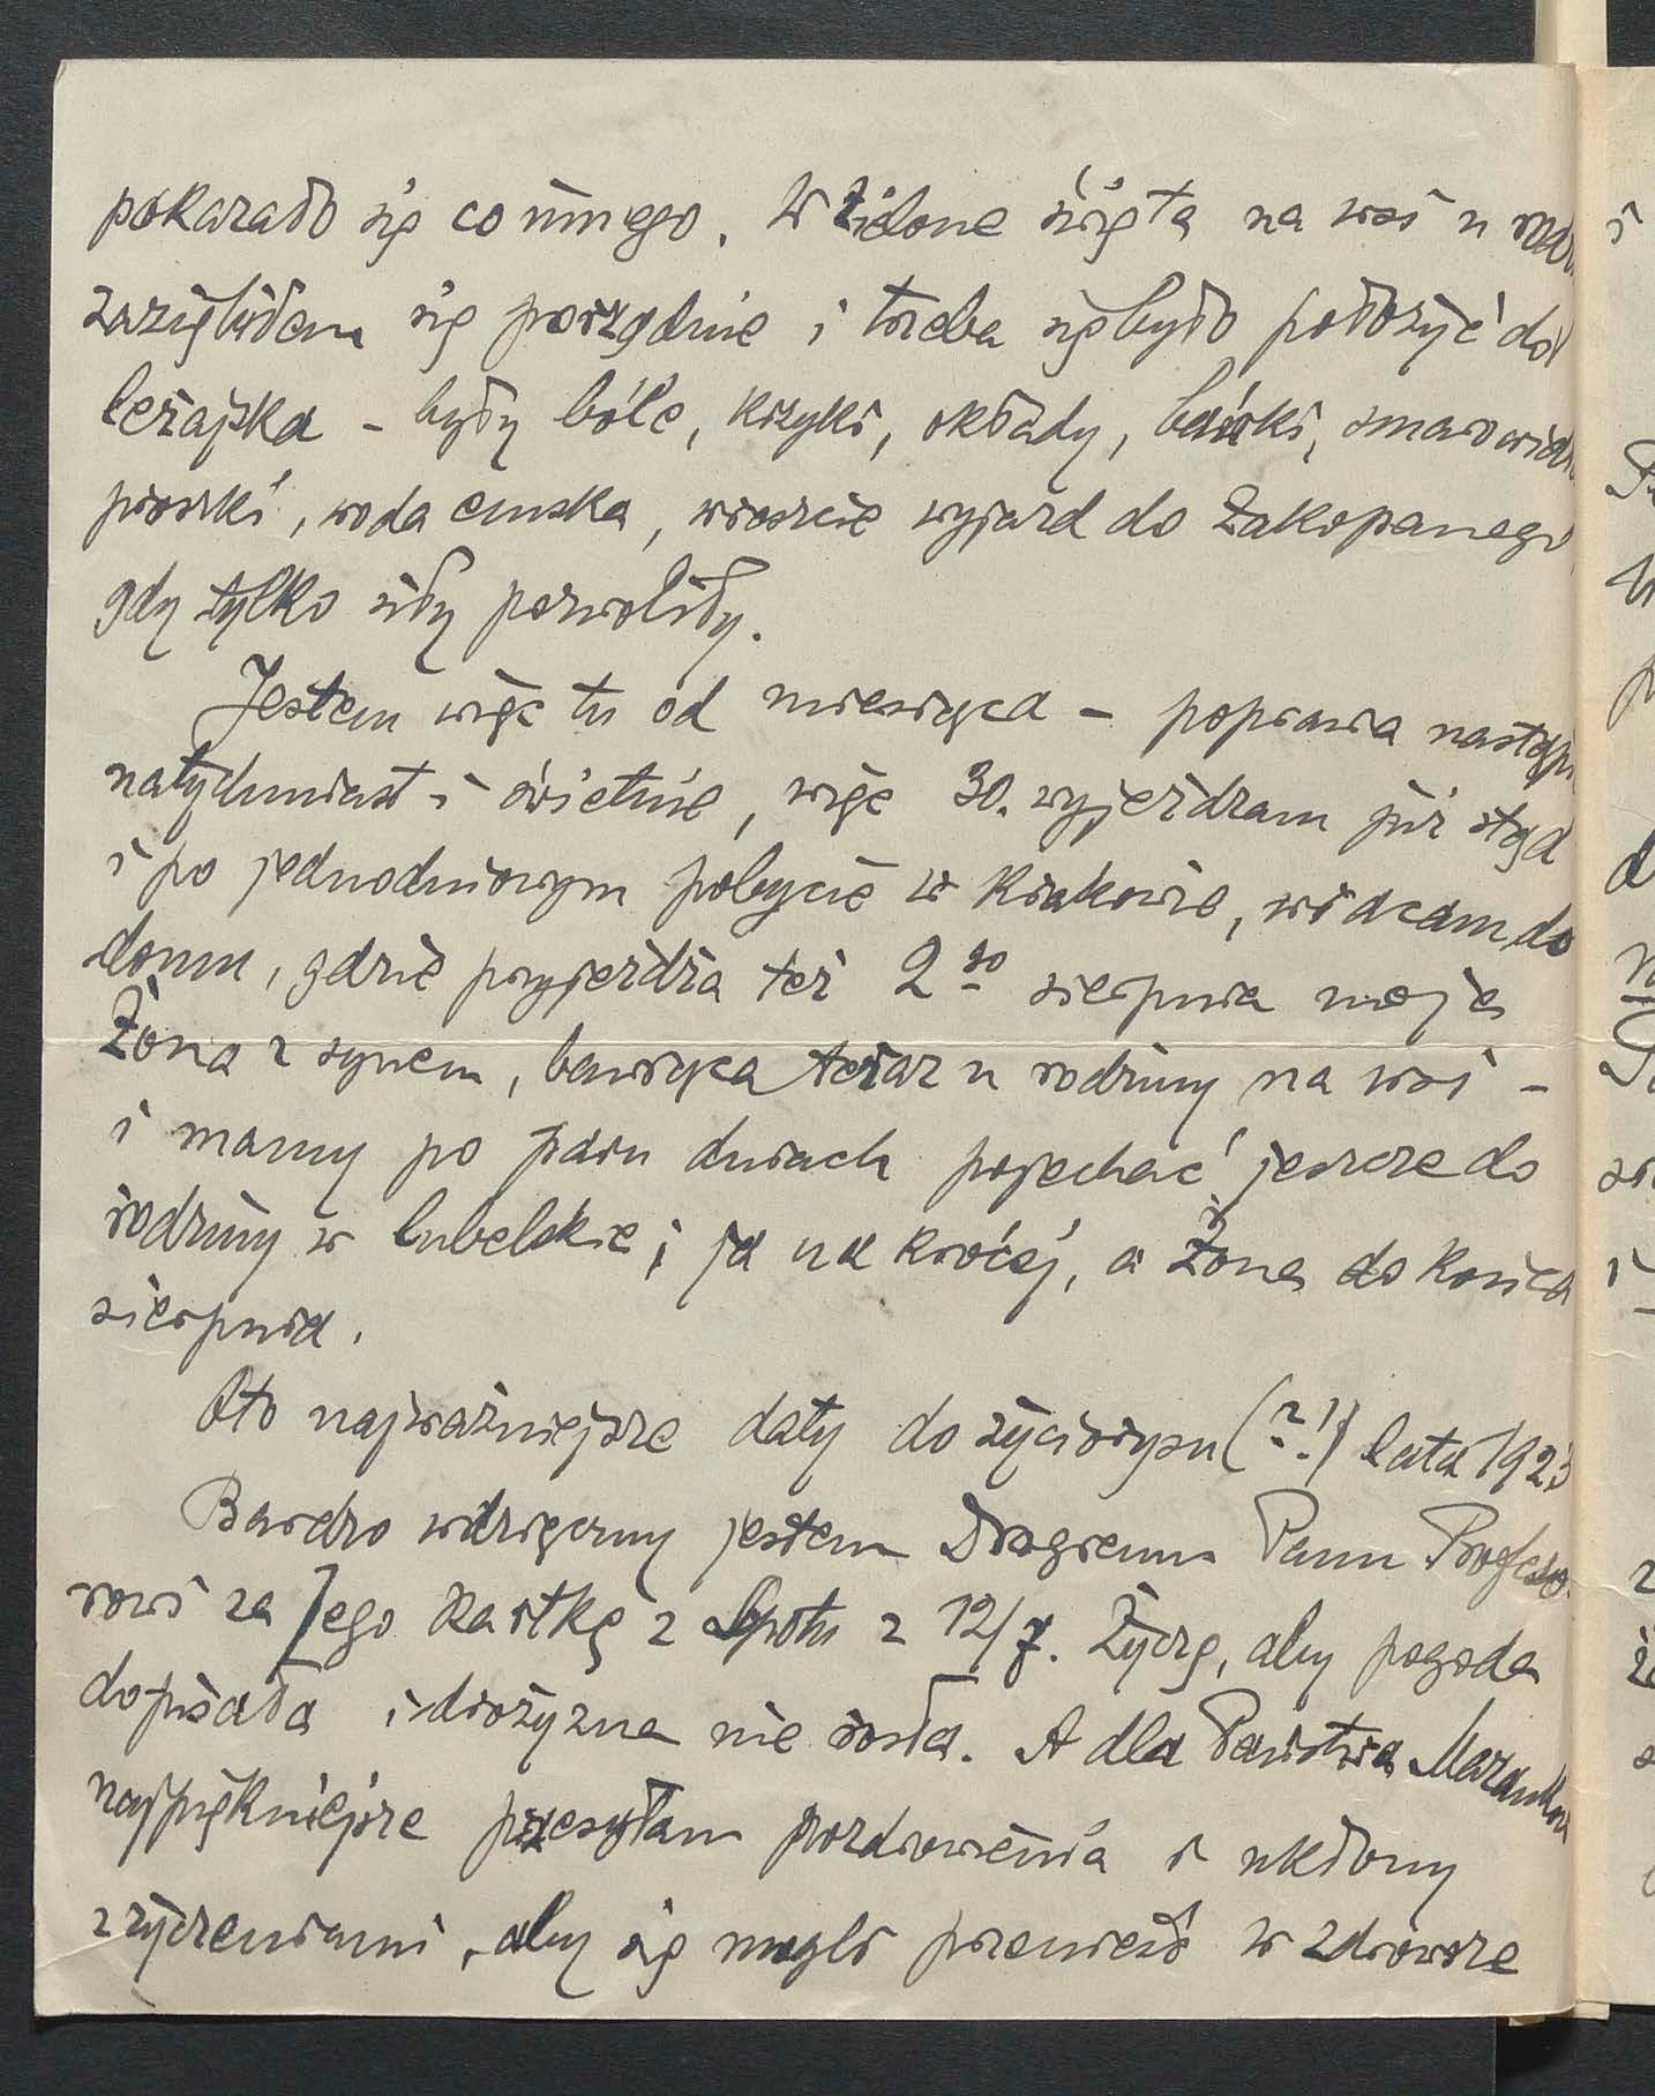 pokazało się co innego. W Zielone święta na wsi u
zaziębiłem się porządnie i trzeba się było położyć do
leżajska – były bóle, krzyki, okłady, bańki,
proszki, woda emska, wreszcie wyjazd do Zakopanego
gdy tylko siły pozwoliły.
Jestem więc tu od miesiąca – poprawa
natychmiast i świetnie, więc 30. wyjeżdżam już stąd
i po jednodniowym pobycie w Krakowie, wracam do
domu, gdzie przyjeżdża też 2go sierpnia moja
Żona z synem, bawiąca teraz u rodziny na wsi –
i mamy po paru dniach pojechać jeszcze do
rodziny w lubelskie; ja na krócej, a Żona do końca
sierpnia.
Oto najważniejsze daty do życiorysu (?!) lata 1923
Bardzo wdzięczny jestem Drogiemu Panu Profeso-
rowi za Jego kartkę z Sopotu z 12/7. Życzę, aby pogoda
dopisała i drożyzna nie rosła. A dla Państwa
najpiękniejsze przesyłam pozdrowienia i ukłony
z życzeniami, aby się mogli przenieść w zdrowsze